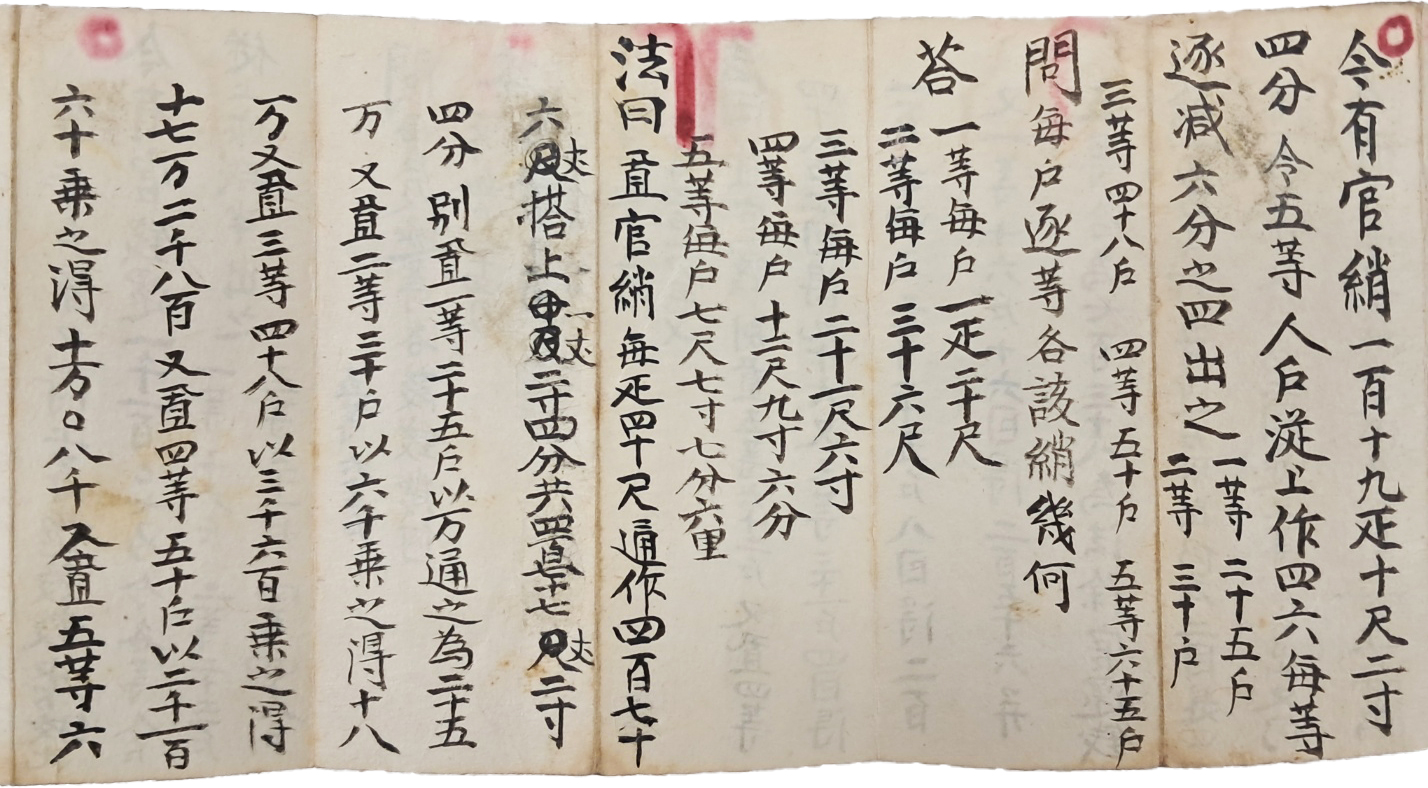 今有官綃一百十九疋十尺二寸
四分 令五等人戶從上作四六每等
逐减六分之四出之 一等 二十五戶
二等 三十戶
三等四十八戶 四等五十戶 五等六十五戶
問每戶逐等各該綃幾何
荅 一等每戶一疋二十尺
二等每戶三十六尺
三等每戶二十一尺六寸
四等每戶十二尺九寸六分
五等每戶七尺七寸七分六厘
法曰 置官綃每疋四十尺通作四百七十
六丈搭上一丈二寸四分共四百七十七丈二寸
四分別置一等二十五戶以万通之為二十五
万又置二等三十戶以六千乗之得十八
万又置三等四十八戶以三千六百乗之得
十七万二千八百又置四等五十戶以二千一百
六十乗之得十万〇八千又置五等六